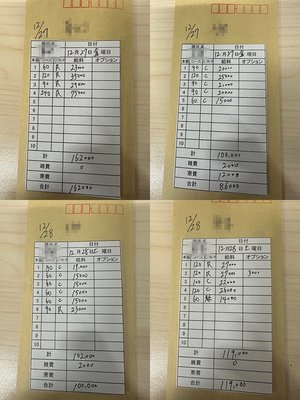 12/27
日付
12月27日金曜日
本数 コース C/R/W 給料 オプション
1 60 R
2 120 R
3 90 R
4 240 R 95000
5
6
7
8
9
10
計 162000
雑費 0
合計 162000
12/27
日付
12月27日金曜日
本数 コース C/R/W 給料 オプション
1 90 C 20000
2 120 C
3 90 C 20000
4 90 C 20000
5 60 C 15000
6
7
8
9
10
計 100.000
雑費 2000
12000
合計 86000
12/28
日付
12月28日土曜日
本数 コース C/R/W 給料 オプション
1 80 C 19000
2 60 C 15000
3 60 C 15000
4 60 C 15000
5 60 C 15000
6 90 R 23000
7
8
9
10
計 102.000
雑費 2000
合計 100.000
12/28
日付
12月28日土曜日
本数 コース C/R/W 給料 オプション
1 120 R 27000
2 120 R 27000
3 100 C 22000
4 120 C
5 60 14000
6
7
8
9
10
計 119.000
雑費 0
合計 119.000